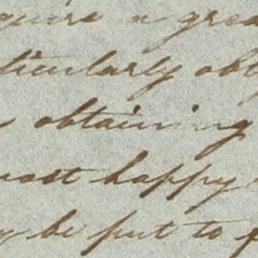 quire a grea
ticularly obl
obtaining
most happy
y be put to f